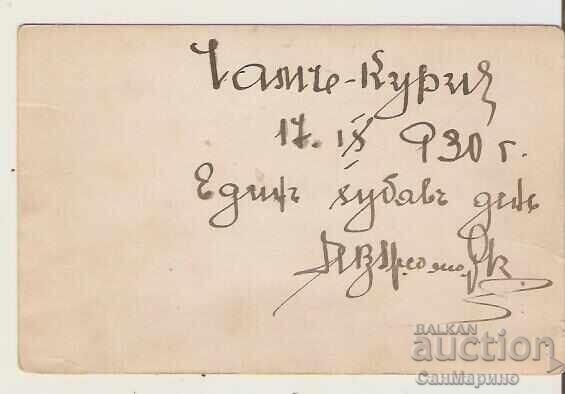 Чамъ-Курия
17. IX 930 г.
Единъ хубавъ день
BALKAN
auction
СанМарино